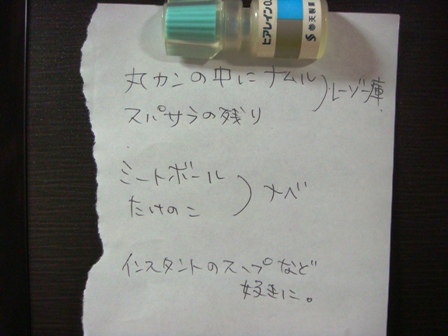 ヒアレイン0.
参天製薬
丸カンの中にナムル
スパサラの残り
レーゾー庫
ミートボール
たけのこ
ナベ
インスタントのスープなど
好きに。